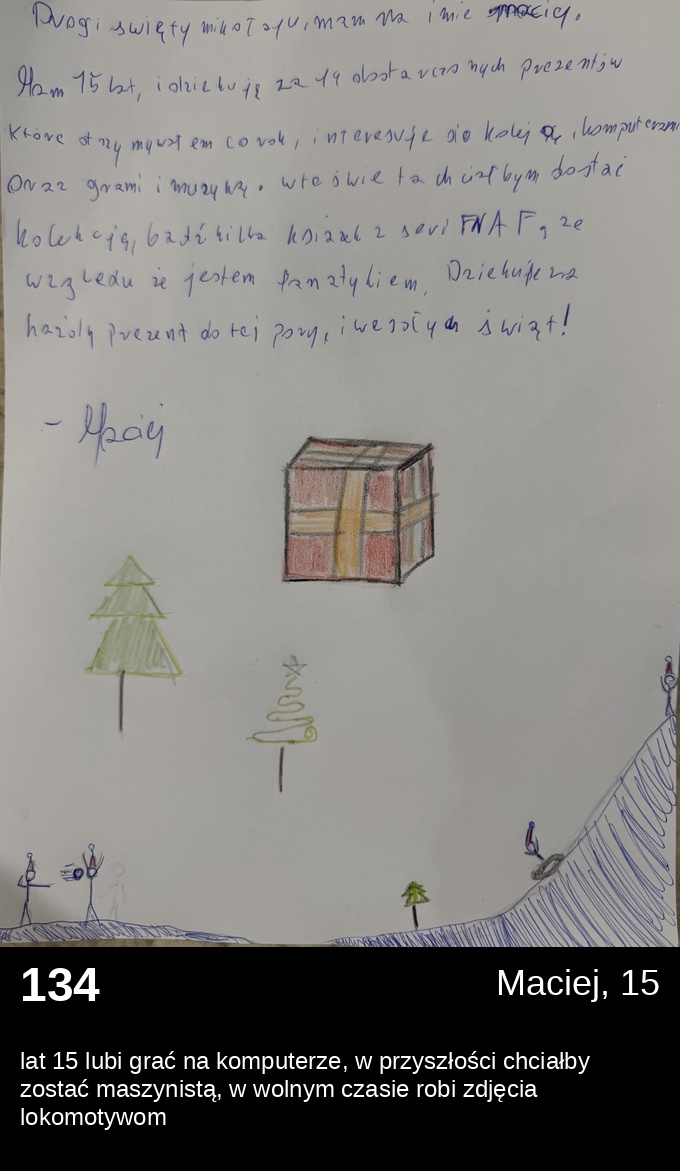 Drogi święty mikołaju, mam na imie maciej.
Mam 15 lat, i dziekuję za 14 dostarczonych prezentów
Które otrzymywałem co rok, interesuje sie koleją, komputerami
Oraz grami i muzyką. wte świeta chciałbym dostać
kolekcję, bądź kilka książek z seri FNAF, ze
względu że jestem fanatykiem. Dziekuje za
każdy prezent do tej pory, i wesołych świąt!
- Maciej
134
Maciej, 15
lat 15 lubi grać na komputerze, w przyszłości chciałby
zostać maszynistą, w wolnym czasie robi zdjęcia
lokomotywom